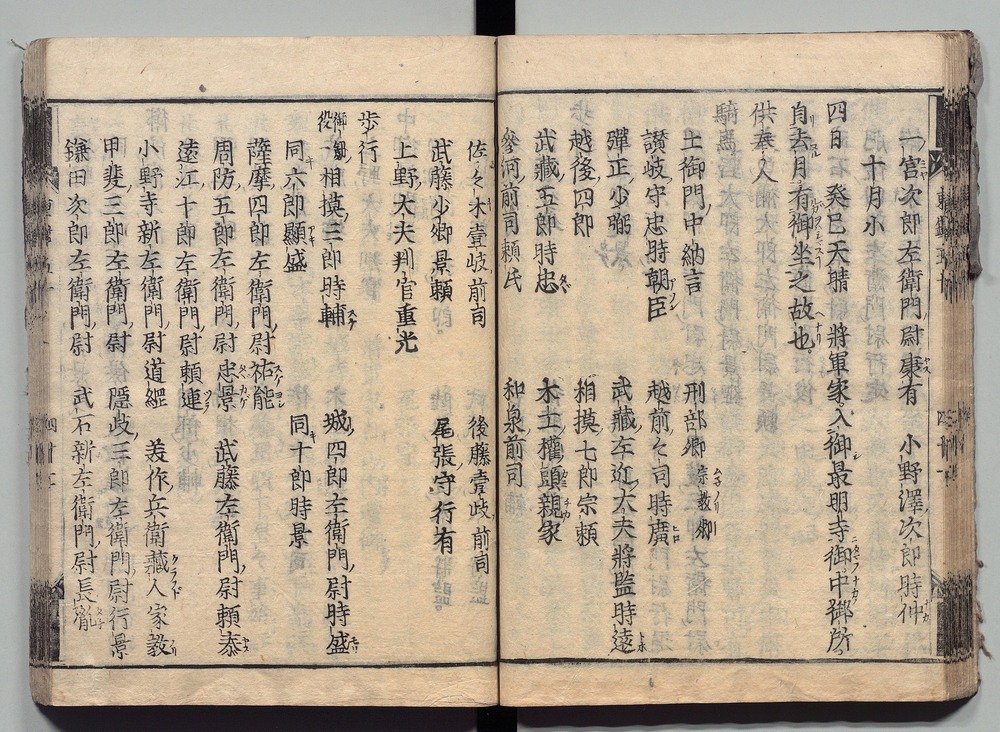 一宮次郎左衛門尉康有　小野澤次郎時仲
十月小
四日癸巳天晴將軍家入御最明寺御中御所
自去月有御坐之故也
供奉人
騎馬
土御門中納言　刑部卿宗教卿
讃岐守忠時朝臣　越前々司時廣
彈正少弼　武藏左近大夫將監時遠
越後四郎　相摸七郎宗頼
武藏五郎時忠　木工權頭親家
參河前司頼氏　和泉前司
佐々木壹岐前司　後藤壹岐前司
武藤少卿景頼　尾張守行有
上野大夫判官重光
歩行
御劔役　相摸三郎時輔　城四郎左衛門尉時盛
同六郎顯盛　同十郎時景
薩摩四郎左衛門尉祐能
周防五郎左衛門尉忠景　武藤左衛門尉頼泰
遠江十郎左衛門尉頼連
小野寺新左衛門尉道經　美作兵衛藏人家教
甲斐三郎左衛門尉　隱岐三郎左衛門尉行景
鎌田次郎左衛門尉　武石新左衛門尉長胤